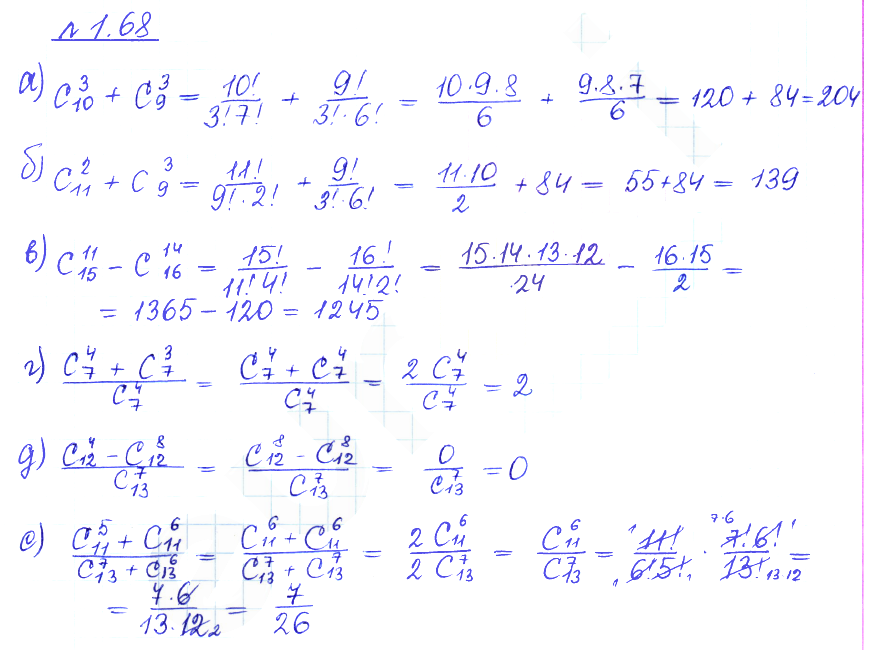 № 1.68
а) C₁₀³ + C₉³ = 10!/(3!7!) + 9!/(3!·6!) = (10·9·8)/6 + (9·8·7)/6 = 120 + 84 = 204
б) C₁₁² + C₉³ = 11!/(9!·2!) + 9!/(3!·6!) = (11·10)/2 + 84 = 55+84 = 139
в) C₁₅¹¹ − C₁₆¹⁴ = 15!/(11!4!) − 16!/(14!2!) = (15·14·13·12)/24 − (16·15)/2 =
= 1365 − 120 = 1245
г) (C₇⁴ + C₇³)/C₇⁴ = (C₇⁴ + C₇⁴)/C₇⁴ = 2C₇⁴/C₇⁴ = 2
д) (C₁₂⁴ − C₁₂⁸)/C₁₃⁷ = (C₁₂⁸ − C₁₂⁸)/C₁₃⁷ = 0/C₁₃⁷ = 0
е) (C₁₁⁵ + C₁₁⁶)/(C₁₃⁷ + C₁₃⁶) = (C₁₁⁶ + C₁₁⁶)/(C₁₃⁷ + C₁₃⁷) = 2C₁₁⁶/2C₁₃⁷ = C₁₁⁶/C₁₃⁷ = 11!/(6!5!) · 7!·6!/13! =
= (7·6)/(13·12) = 7/26